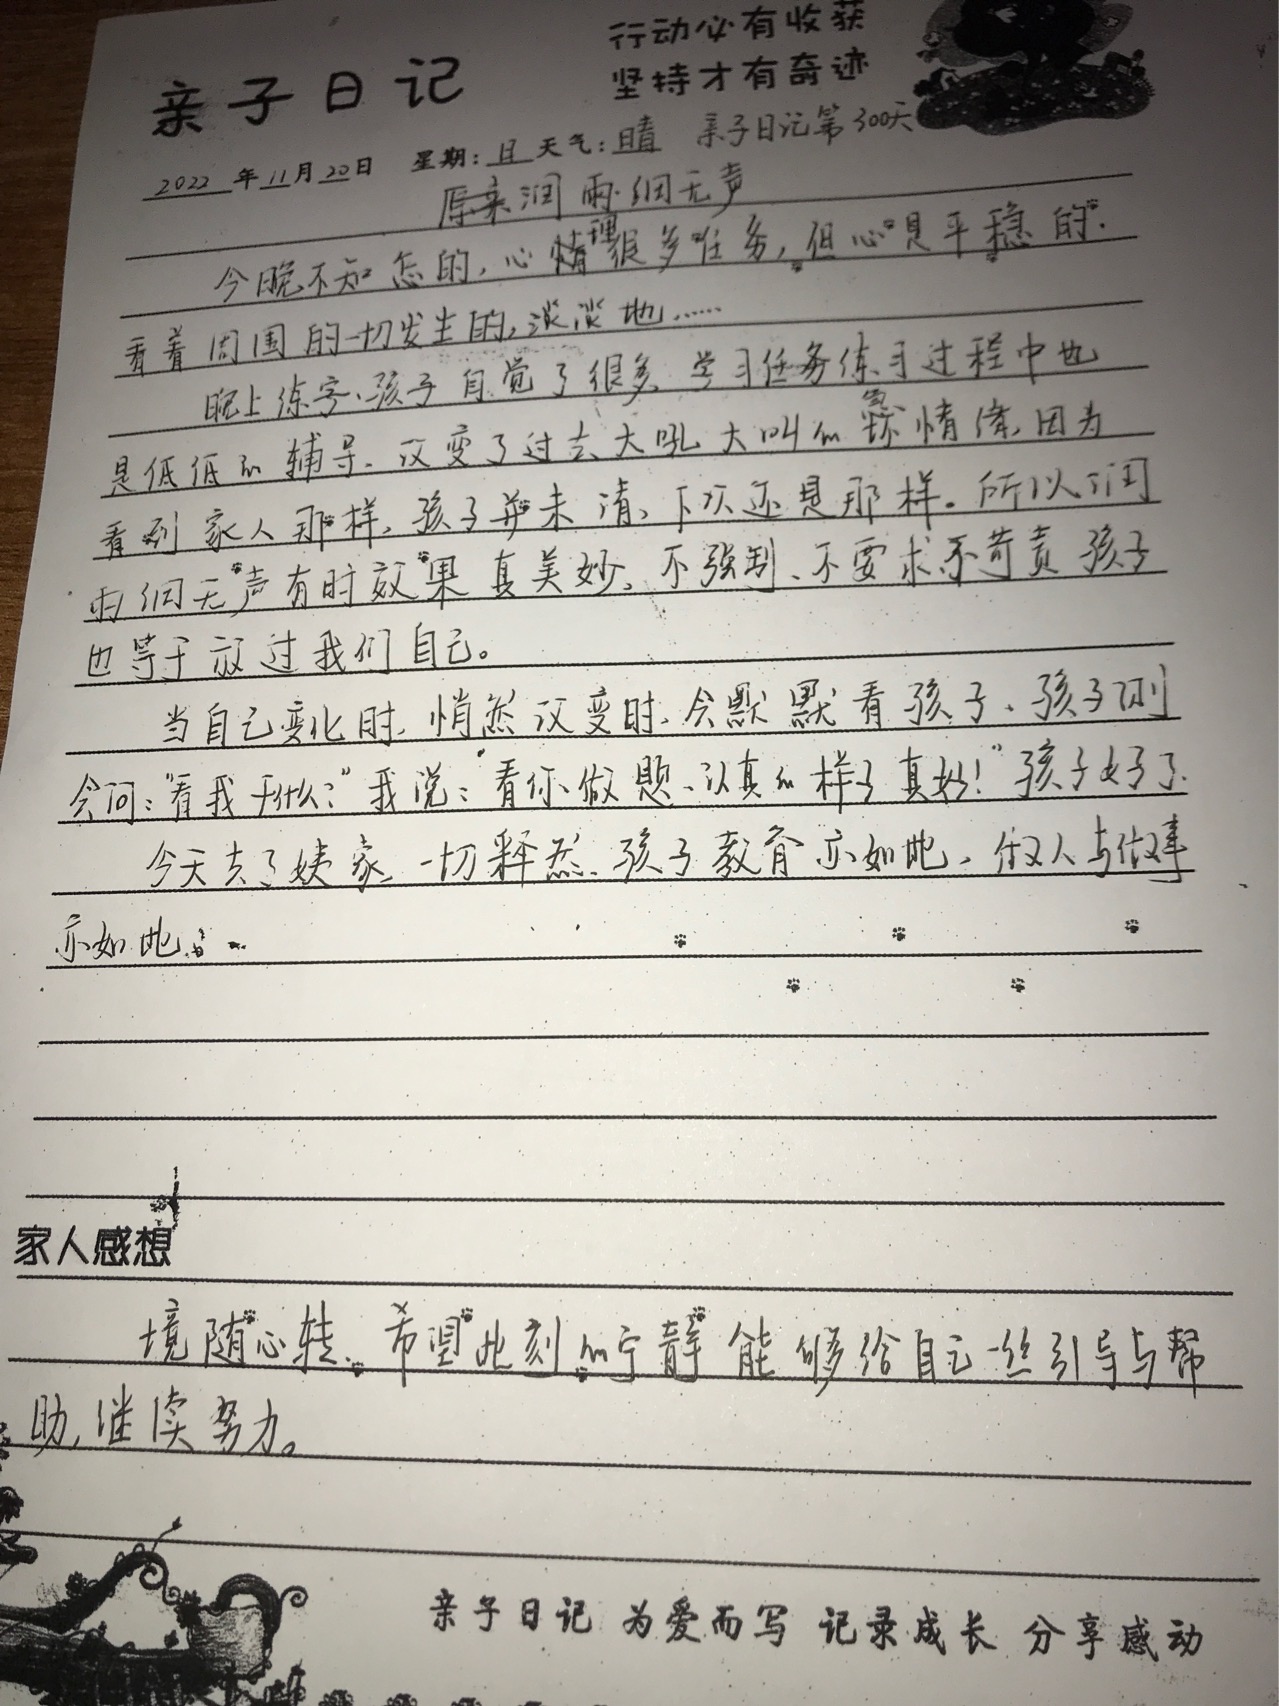 行动必有收获
坚持才有奇迹
亲子日记
亲子日记第300天
2022年11月20日 星期:日 天气:晴
原来润雨细无声
今晚不知怎的,心情理很多任务,但心是平稳的.
看着周围的一切发生的,淡淡地……
晚上练字、孩子自觉了很多、学习任务练习过程中也
是低低的辅导、改变了过去大吼大叫的急情绪,因为
看到家人那样,孩子并未清、下次还是那样。所以润
雨细无声有时效果真美妙、不强制、不要求不苛责孩子
也等于放过我们自己。
当自己变化时、悄然改变时、会默默看孩子、孩子则
会问:“看我干什么?”我说:“看你做题、认真的样子真好!”孩子好了.
今天去了姨家、一切释然、孩子教育亦如此、做人与做事
亦如此。
家人感想
境随心转、希望此刻的宁静能够给自己一丝引导与帮
助,继续努力。
亲子日记 为爱而写 记录成长 分享感动